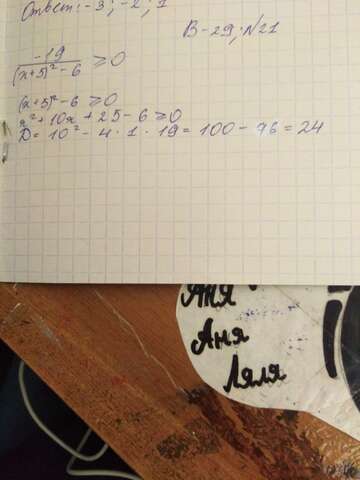 Ответ: -3; -2; 1
В-29; №21
-19
(x+5)²-6 ⩾0
(x+5)²-6 ⩾0
x²+10x+25-6 ⩾0
D= 10²-4·1·19=100-76=24
Аня
Аня
Ляля